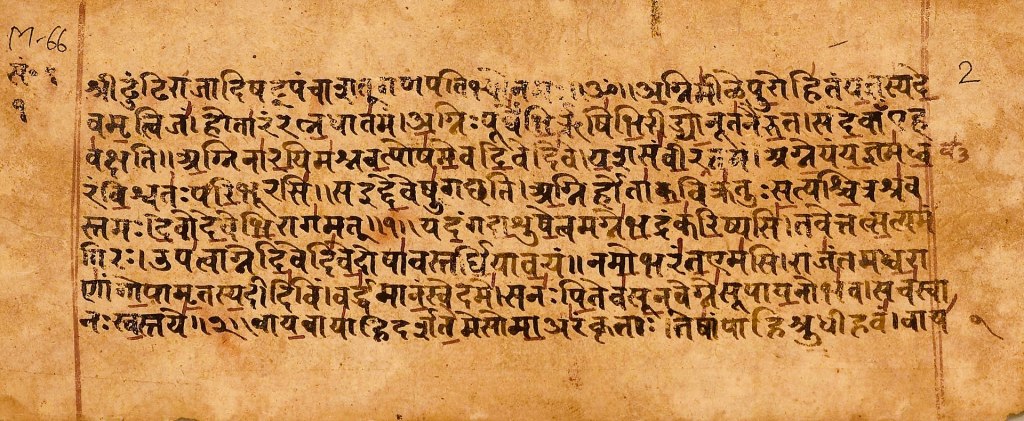 M-66
१
2
श्रीढुंढिराजादिषट्पंचाशत् गणपतिभ्यो नमः॥ ॐ॥ अग्निमीळे पुरोहितं यज्ञस्य दे
वमृत्विजं। होतारं रत्नधातमं। अग्निः पूर्वेभिर्ऋषिभिरीड्यो नूतनैरुत। स देवाँ एह
वक्षति॥ अग्निना रयिमश्नवत्पोषमेव दिवेदिवे। यशसं वीरवत्तमं। अग्ने यं यज्ञमध्व
रं विश्वतः परिभूरसि॥ स इद्देवेषु गछति। अग्निर्होता कविक्रतुः सत्यश्चित्रश्रव
स्तमः। देवो देवेभिरागमत्॥१॥ यदंग दाशुषे त्वमग्ने भद्रं करिष्यसि। तवेत्तत्सत्यमं
गिरः। उप त्वाग्ने दिवेदिवे दोषावस्तर्धिया वयं॥ नमो भरंत एमसि। राजंतमध्वरा
णां गोपामृतस्य दीदिविं। वर्द्धमानं स्वे दमे। स नः पितेव सूनवेग्ने सूपायनो भव। सचस्वा
नः स्वस्तये॥२॥ वायवायाहि दर्शतेमे सोमा अरंकृताः। तेषां पाहि श्रुधी हवं। वाय
१